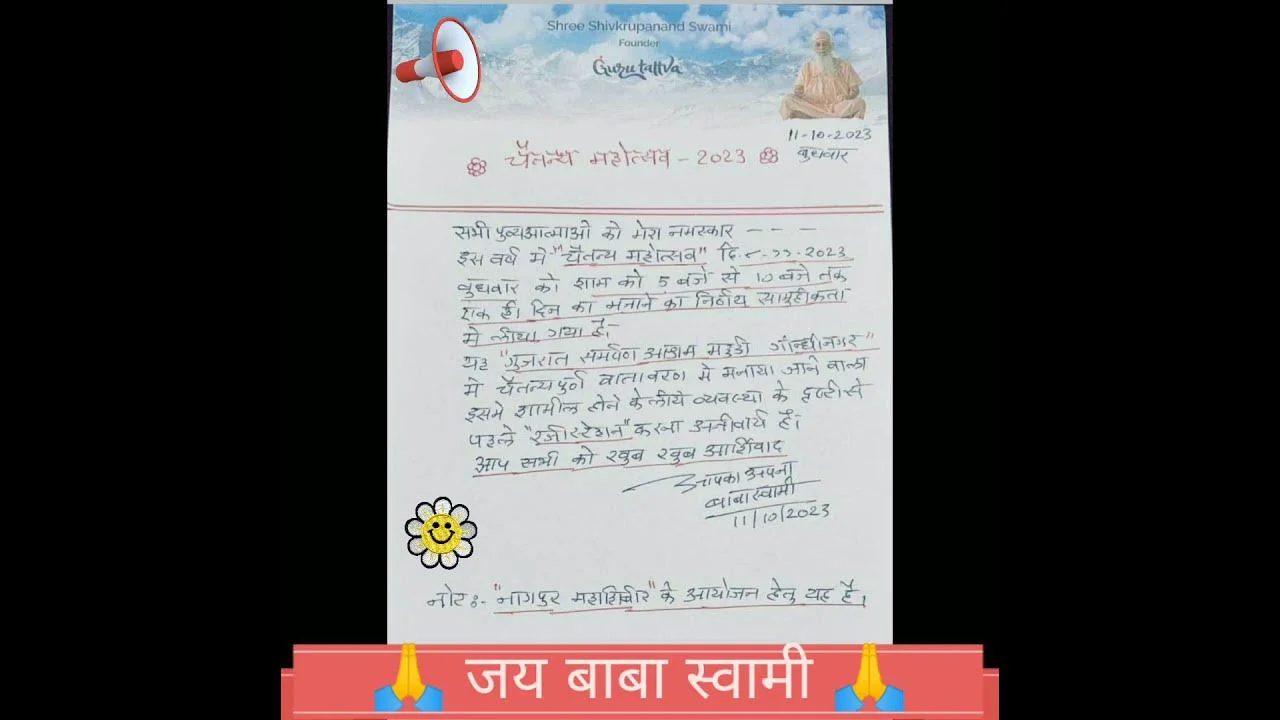 Shree Shivkrupanand Swami
Founder
Gurutattva
11-10-2023
बुधवार
चैतन्य महोत्सव - 2023
सभी पुण्यआत्माओ को मेरा नमस्कार - - -
इस वर्ष मे "चैतन्य महोत्सव" दि. ८-११-2023
बुधवार को शाम को 5 बजे से 10 बजे तक
एक ही दिन का मनाने का निर्णय सामुहीकता
मे लीया गया है,
यह "गुजरात समर्पण आश्रम महुडी गांन्धीनगर"
मे चैतन्यपुर्ण वातावरण मे मनाया जाने वाला
इसमे शामील होने के लीये व्यवस्था के दृष्टीसे
पहले "रजीस्ट्रेशन" करना अनीवार्य है,
आप सभी को खुब खुब आर्शिवाद
आपका अपना
बाबास्वामी
11/10/2023
नोट :- "नागपुर महाशिबीर" के आयोजन हेतु यह है।
जय बाबा स्वामी